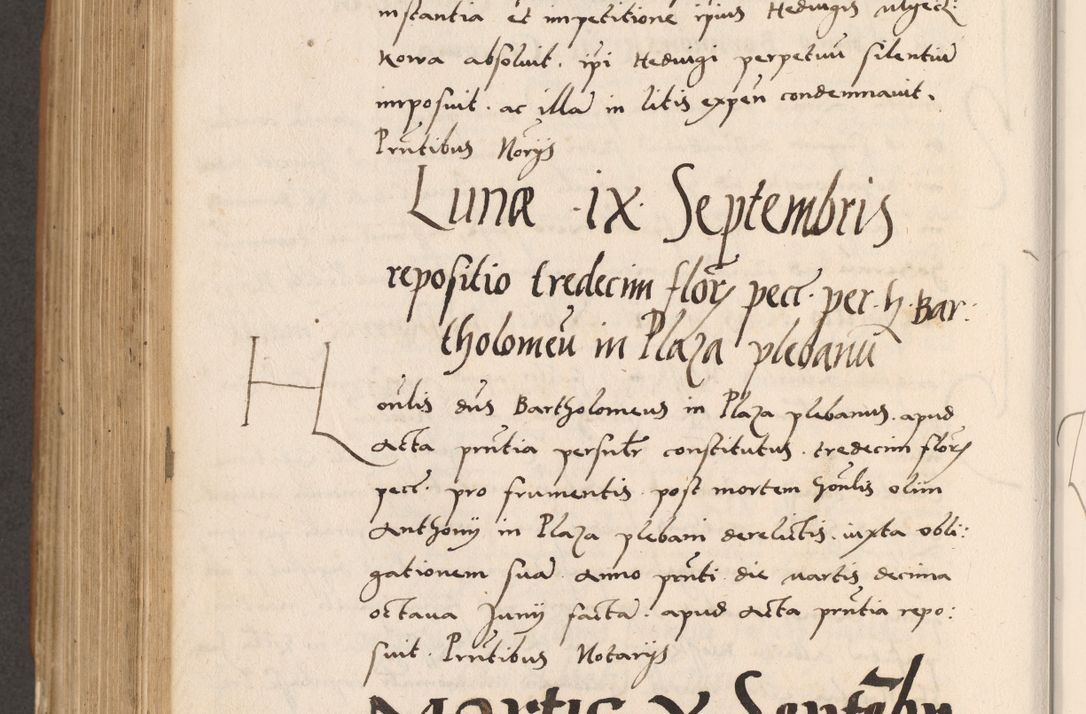 instantia et impetitione ip̄ius Hedvigis
kowa absoluit. ip̄i Hedvigi perpetuū silentiū
imposuit. ac illā in litis expeñ condemnavit.
Pr̄ntibus Nōrijs
Lunæ .ix. Septembris
repositio tredecim flor̄ pecc̄. per. h. Bar:
tholomeū in Plaza plebanū
Honꝛlis dn̄s Bartholomeus in Plaza plebanus. apud
acta pr̄ntia persnl̄r constitutus. tredecim flor̄
pecc̄. pro frumentis. post mortem honꝛlis olim
Anthonij in Plaza plebani derelictis. iuxta obli:
gationem suā. Anno pn̄ti die martis decima
octava Junij factā. apud acta pr̄ntia repo:
suit. Pr̄ntibus Notarijs
Martis X Septēbr